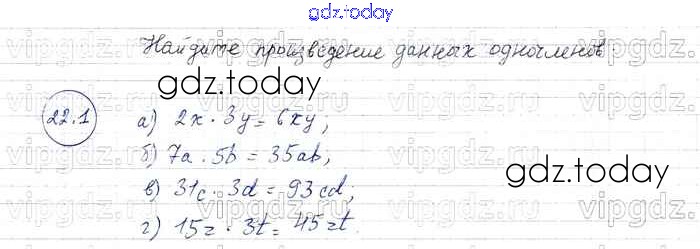 gdz.today
Найдите произведение данных одночленов:
gdz.today
22.1
а) 2x · 3y = 6xy;
б) 7a · 5b = 35ab;
в) 31c · 3d = 93cd;
г) 15z · 3t = 45zt.
gdz.today
vipgdz.ru